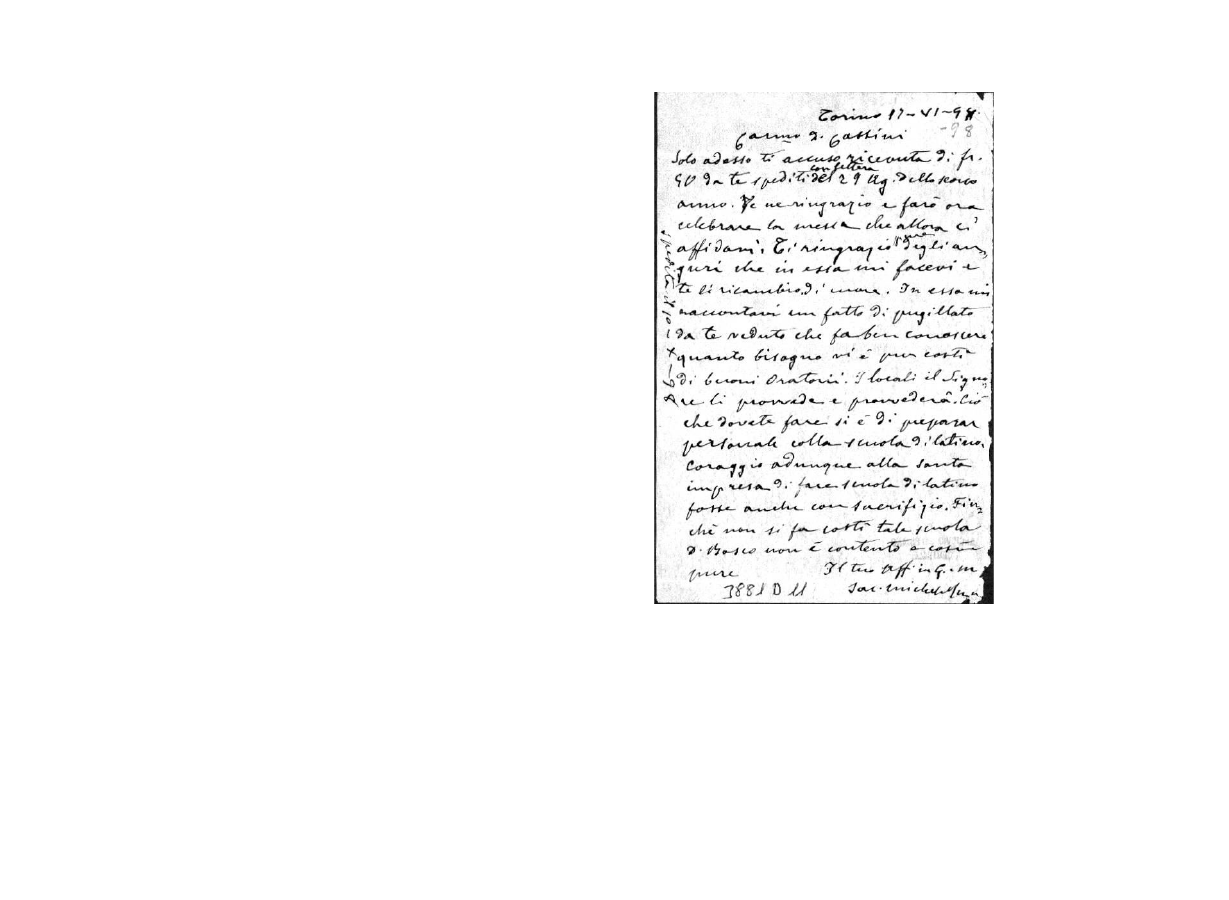 Torino 17-VI-98
-98
Carmo D. Cassini
Solo adesso ti accuso ricevuta di fr.
50 da te spediti con lettera del 29 Ag. dello scorso
anno. Te ne ringrazio e farò ora
celebrare la messa che allora ci
affidavi. Ti ringrazio pure degli au-
guri che in essa mi facevi e
te li ricambio di cuore. In essa mi
raccontavi un fatto di pugillato
da te veduto che fa ben conoscere
quanto bisogno vi è pur costì
di buoni Oratorii. I locali il Signo-
re li provvede e provvederà. Ciò
che dovete fare si è di preparar
personale colla scuola di latino.
Coraggio adunque alla santa
impresa di fare scuola di latino
fosse anche con sacrifizio. Fin-
chè non si fa costì tale scuola
D. Bosco non è contento e così
pure Il tuo aff. in G. M
Sac. Michele Rua
3881 D 11
spedita il